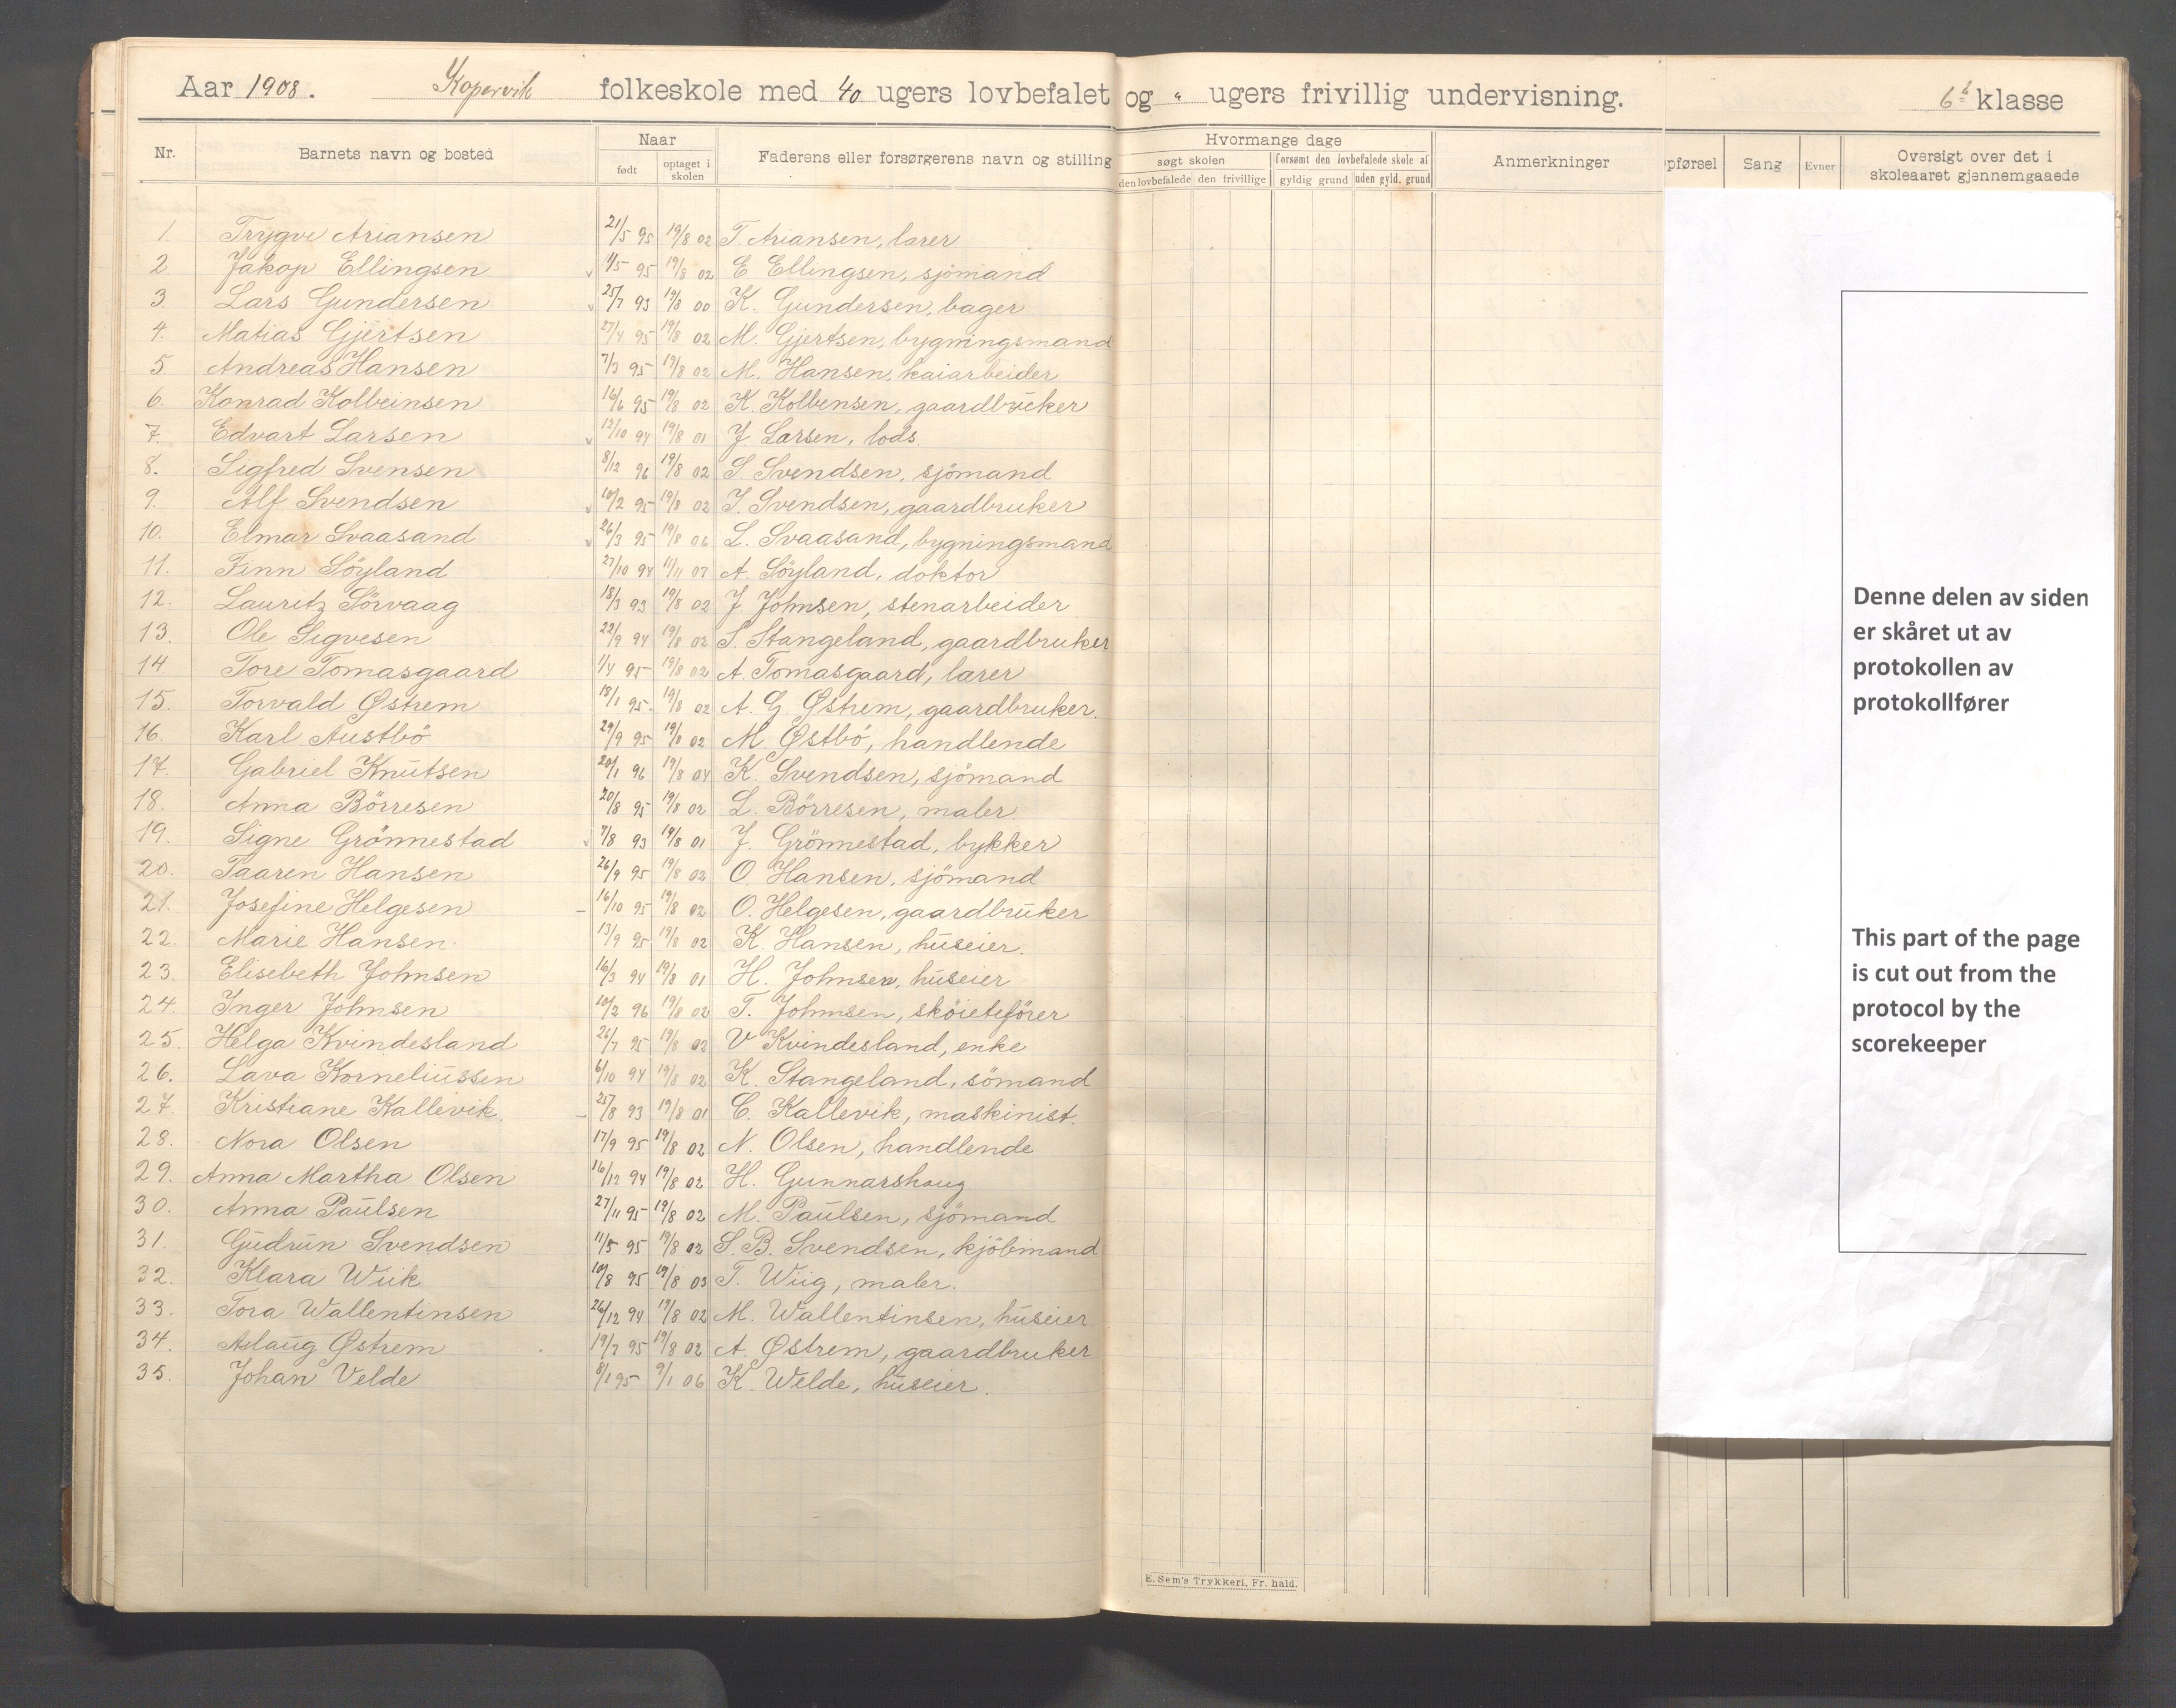 Aar 1908. Kopervik folkeskole med 40 ugers lovbefalet og " ugers frivillig undervisning. 6b klasse
Nr. Barnets navn og bosted Naar født optaget i skolen Faderens eller forsørgerens navn og stilling Hvormange dage søgt skolen den lovbefalede den frivillige forsømt den lovbefalede skole af gyldig grund uden gyld. grund Anmerkninger pførsel Sang Evner Oversigt over det i skoleaaret gjennemgaaede
1. Trygve Ariansen 21/5 95 19/8 02 T Ariansen, lærer
2. Jakop Ellingsen 1/5 95 19/8 02 E Ellingsen, sjömand
3. Lars Gundersen 25/7 93 19/8 00 K. Gundersen, bager
4. Matias Gjertsen 27/4 95 19/8 02 M. Gjertsen, bygningsmand
5. Andreas Hansen 7/3 95 19/8 02 M. Hansen, kaiarbeider
6. Konrad Kolbeinsen 16/6 95 19/8 02 K. Kolbensen, gaardbruker
7. Edvart Larsen 12/10 94 19/8 01 J. Larsen, lods.
8. Sigfred Svensen 8/12 96 19/8 02 S Svendsen, sjömand
9. Alf Svendsen 10/2 95 19/8 02 J. Svendsen, gaardbruker
10. Elmar Svaasand 26/3 95 19/8 06 L. Svaasand, bygningsmand
11. Finn Söyland 27/10 94 11/11 07 A. Söyland, doktor
12. Lauritz Sörvaag 18/3 93 19/8 02 J. Johnsen, stenarbeider
13. Ole Sigvesen 22/9 94 19/8 02 S. Stangeland, gaardbruker
14. Tore Tomasgaard 1/4 95 19/8 02 A. Tomasgaard, lærer
15. Torvald Østrem 18/1 95 19/8 02 A. G. Østrem, gaardbruker.
16. Karl Austbö 29/9 95 19/8 02 M. Østbö, handlende
17. Gabriel Knutsen 20/1 96 19/8 04 K. Svendsen, sjömand
18. Anna Börresen 20/8 95 19/8 02 L. Börresen, maler.
19. Signe Grönnestad 7/8 93 19/8 01 J. Grönnestad, bykker
20. Taaren Hansen 26/9 95 19/8 02 O. Hansen, sjömand
21. Josefine Helgesen 16/10 95 19/8 02 O. Helgesen, gaardbruker
22. Marie Hansen. 13/9 95 19/8 02 K. Hansen, huseier.
23. Elisebeth Johnsen 16/3 94 19/8 01 H. Johnsen, huseier
24. Inger Johnsen 10/2 96 19/8 02 T. Johnsen, sköieteförer
25. Helga Kvindesland 26/7 95 19/8 02 V Kvindesland, enke
26. Lava Korneliussen 6/10 94 19/8 02 K. Stangeland, sömand
27. Kristiane Kallevik. 25/8 93 19/8 01 C. Kallevik, maskinist.
28. Nora Olsen 17/9 95 19/8 02 N. Olsen, handlende
29. Anna Martha Olsen 16/12 94 19/8 02 H. Gunnarshaug
30. Anna Paulsen 27/11 95 19/8 02 M. Paulsen, sjömand
31. Gudrun Svendsen 11/5 95 19/8 02 S. B. Svendsen, kjöbmand
32. Klara Wiik 10/8 95 19/8 03 T. Wiig, maler.
33. Tora Wallentinsen 26/12 94 19/8 02 M. Wallentinsen, huseier
34. Aslaug Østrem 19/7 95 19/8 02 A. Østrem, gaardbruker
35. Johan Velde 8/1 95 9/1 06 K. Welde, huseier.
E. Sem's Trykkeri, Fr. hald.
Denne delen av siden
er skåret ut av
protokollen av
protokollfører
This part of the page
is cut out from the
protocol by the
scorekeeper